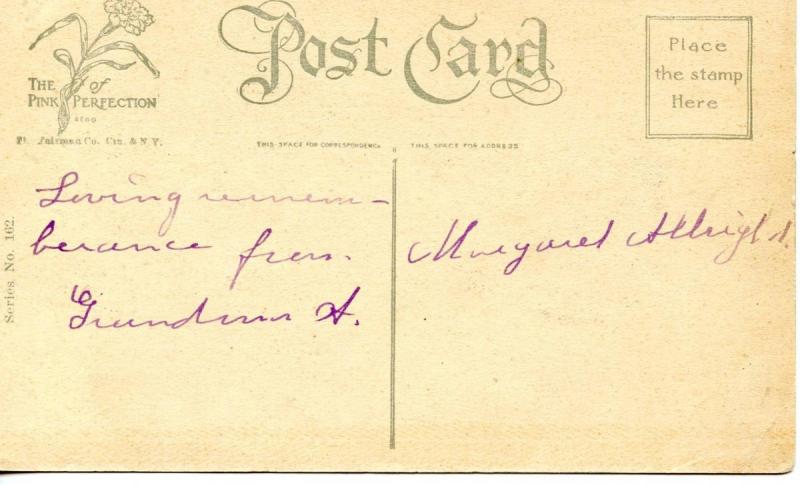 Post Card
THE of
PINK PERFECTION
Place
the stamp
Here
Fairman Co. Cin. & N.Y.
THIS SPACE FOR CORRESPONDENCE
THIS SPACE FOR ADDRESS
Series No. 162.
Loving remem-
berance from
Grandma A.
Margaret Allright